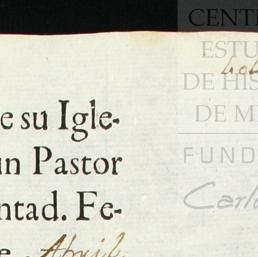 CENT
ESTU
DE HIS
DE M
FUND
Carl
e su Igle-
un Pastor
ntad. Fe-
e Abril